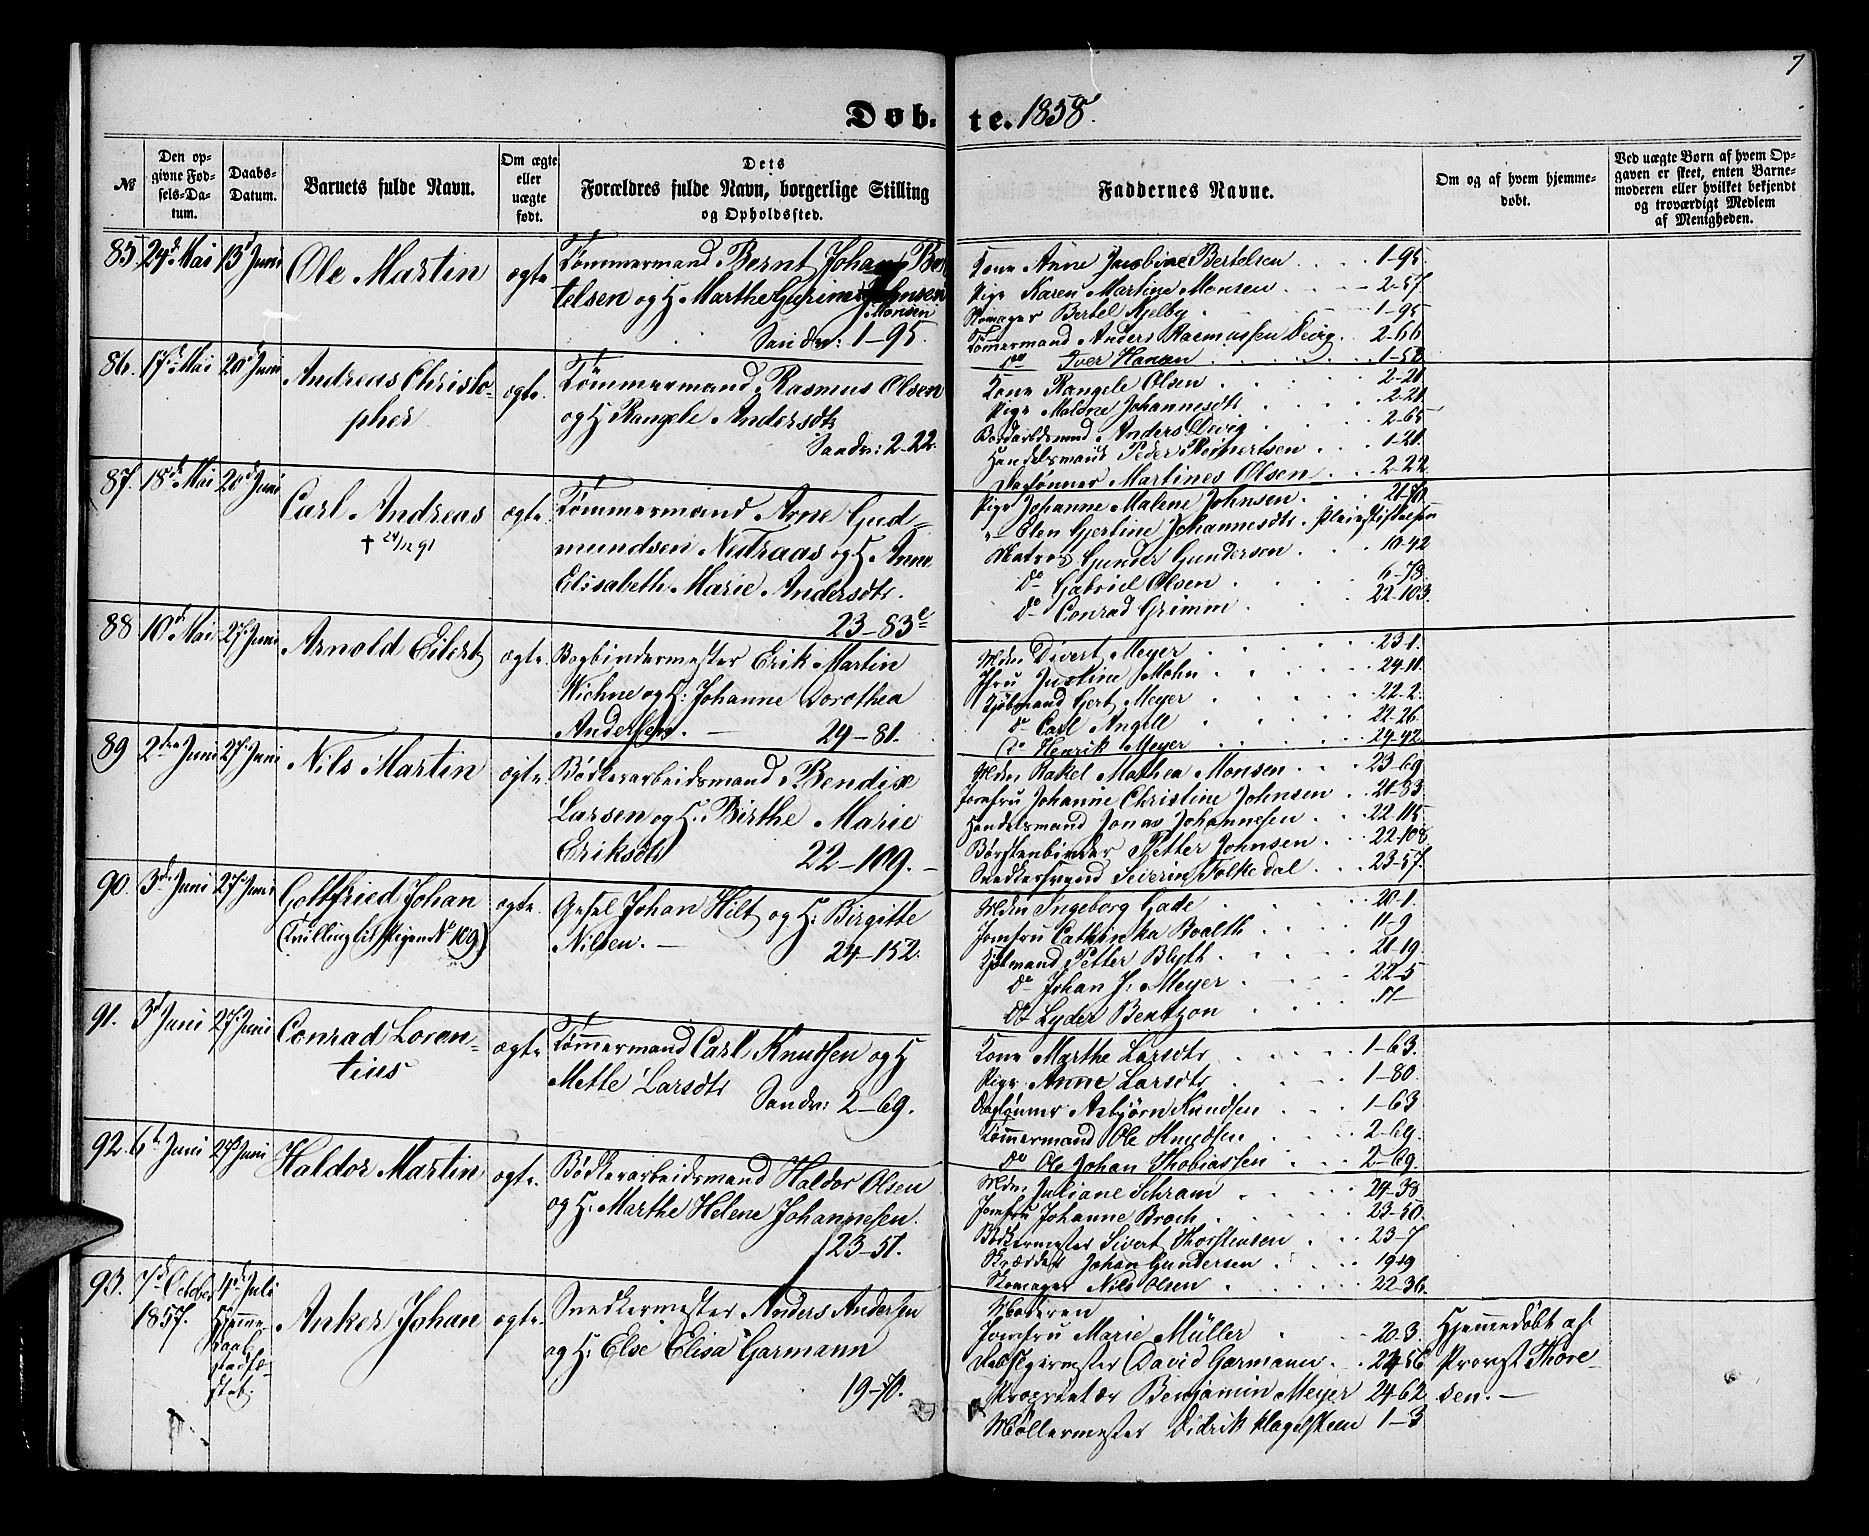 7
Døb-te. 1858.
№
Den opgivne Fødsels-Datum.
Daabs-Datum.
Barnets fulde Navn.
Om ægte eller uægte født.
Dets Forældres fulde Navn, borgerlige Stilling og Opholdssted.
Faddernes Navne.
Om og af hvem hjemmedøbt.
Ved uægte Børn af hvem Opgaven er skeet, enten Barnemoderen eller hvilket bekjendt og troværdigt Medlem af Menigheden.
85. 24d Mai 13d Juni Ole Martin ægte
Tømmermand Bernt Johan Ber
telsen og H. Marthe Gurine
Monsen
Sandv: 1-95.
Kone Anne Bertelsen 1-95
Pige Karen Martine Monsen 2-57
Skomager Bertel 1-95
Tømmermand Anders Rasmussen Devig 2-66
do Iver Hansen 1-58
86. 17d Mai 20d Juni Andreas Christo-
pher ægte.
Tømmermand Rasmus Olsen
og H. Rangele Andersdtr
Sandv: 2-22.
Kone Rangele Olsen 2-21
Pige Malene Johannesdtr 2-21
Anders Devig 2-65
Handelsmand Peder 1-21
Daglønner Martines Olsen 2-22
87. 18d Mai 20d Juni Carl Andreas ægte
† 24/12 91
Tømmermand Arne Gud-
mundsen Nedraas og H. Anne
Elisabeth Marie Andersdtr.
23-83c
Pige Johanne Malene Johnsen 21-70
Elen Gjertine Johannesdtr
Matros Gunder Gundersen 10-42
do Gabriel Olsen 6-78
do Conrad Grimm 22-103
88 10d Mai 27. Juni Arnold Eilert ægte.
Bogbindermester Erik Martin
Wiehne og H. Johanne Dorothea
Andersen. — 24-81.
Mdm Divert Meyer 23-1
Jfru Justine Mohn 24-11
Kjøbmand Gert Meyer 22-2
do Carl Angell 22-26
do Henrik Meyer 24-42
89 2den Juni 27. Juni Nils Martin ægte.
Bødkerarbeidsmand Bendix
Larsen og H. Birthe Marie
Eriksdtr 22-109.
Mdm Rakel Mathea Monsen 23-69
Jomfru Johanne Christine Johnsen 21-83
Handelsmand Jonas Johannesen 22-115
Børstenbinder Petter Johnsen 22-108
Snedkersvend Severin Folkedal 23-57
90. 3die Juni 27. Juni Gottfried Johan
(Tvilling til Pigen No 109) ægte.
Gesel Johan Hilt og H. Birgitte
Nilsen. — 24-152.
Mdm Ingeborg Gade 20-1
Jomfru Cathinka Boalth 11-9
Kjøbmand Petter Blyth 21-19
do Johan J. Meyer 22-5
do Lyder Bentzon
91. 3d Juni 27. Juni Conrad Loren-
tius ægte
Tømmermand Carl Knudsen og H
Mette Larsdtr Sandv: 2-69.
Kone Marthe Larsdtr 1-63.
Pige Anne Larsdtr 1-80
Daglønner Asbjørn Knudsen 1-63
Tømmermand Ole Knudsen 2-69.
do Ole Johan Thobiassen 2-69
92. 6te Juni 27d Juni Haldor Martin ægte.
Bødkerarbeidsmand Haldor Olsen
og H. Marthe Helene Johannesen.
23-51.
Mdm. Juliane Schram 24-38
Jomfru Johanne Broch 23-50.
Bødkermester Sivert Thorstensen 23-7
Skrædder Johan Gundersen 19-19
Skomager Nils Olsen 22-36
93. 7d October 1857. 4d Juli Hjemmedaab stadfæstet. Anker Johan ægte.
Snedkermester Anders Andersen
og H. Else Elisa Garmann
19-70.
Moderen
Jomfru Marie Müller 20-3
David Garmann 22-56
Proprietær Benjamin Meyer 24-62
Møllermester Didrik Hagelsteen 1-3
Hjemmedøbt af
Provst Thore-
sen. —